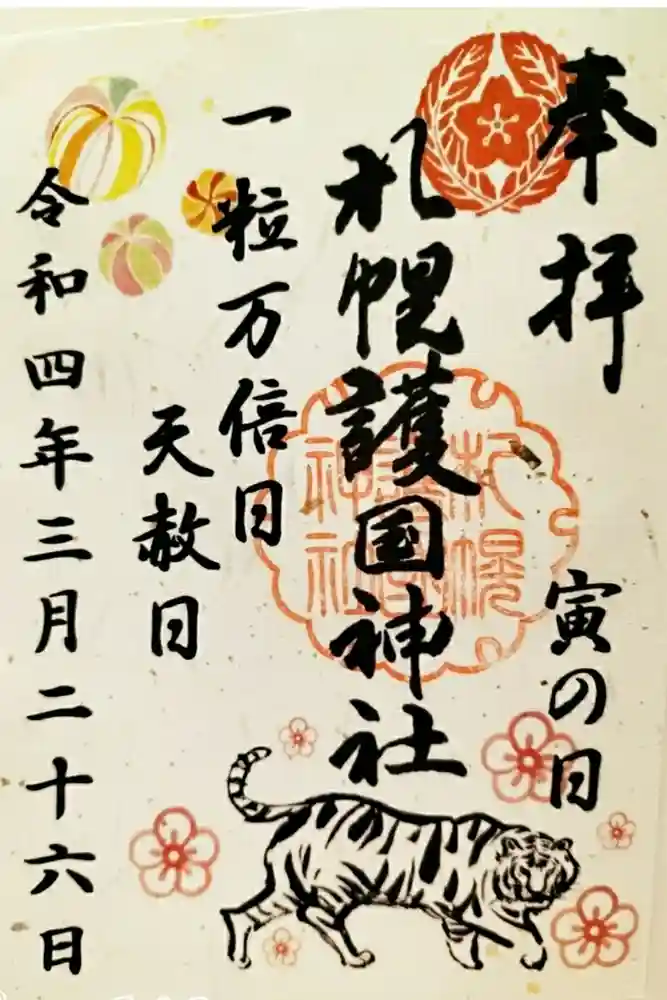 奉拝
寅の日
札幌護国神社
札幌
護国
神社
一粒万倍日
天赦日
令和四年三月二十六日